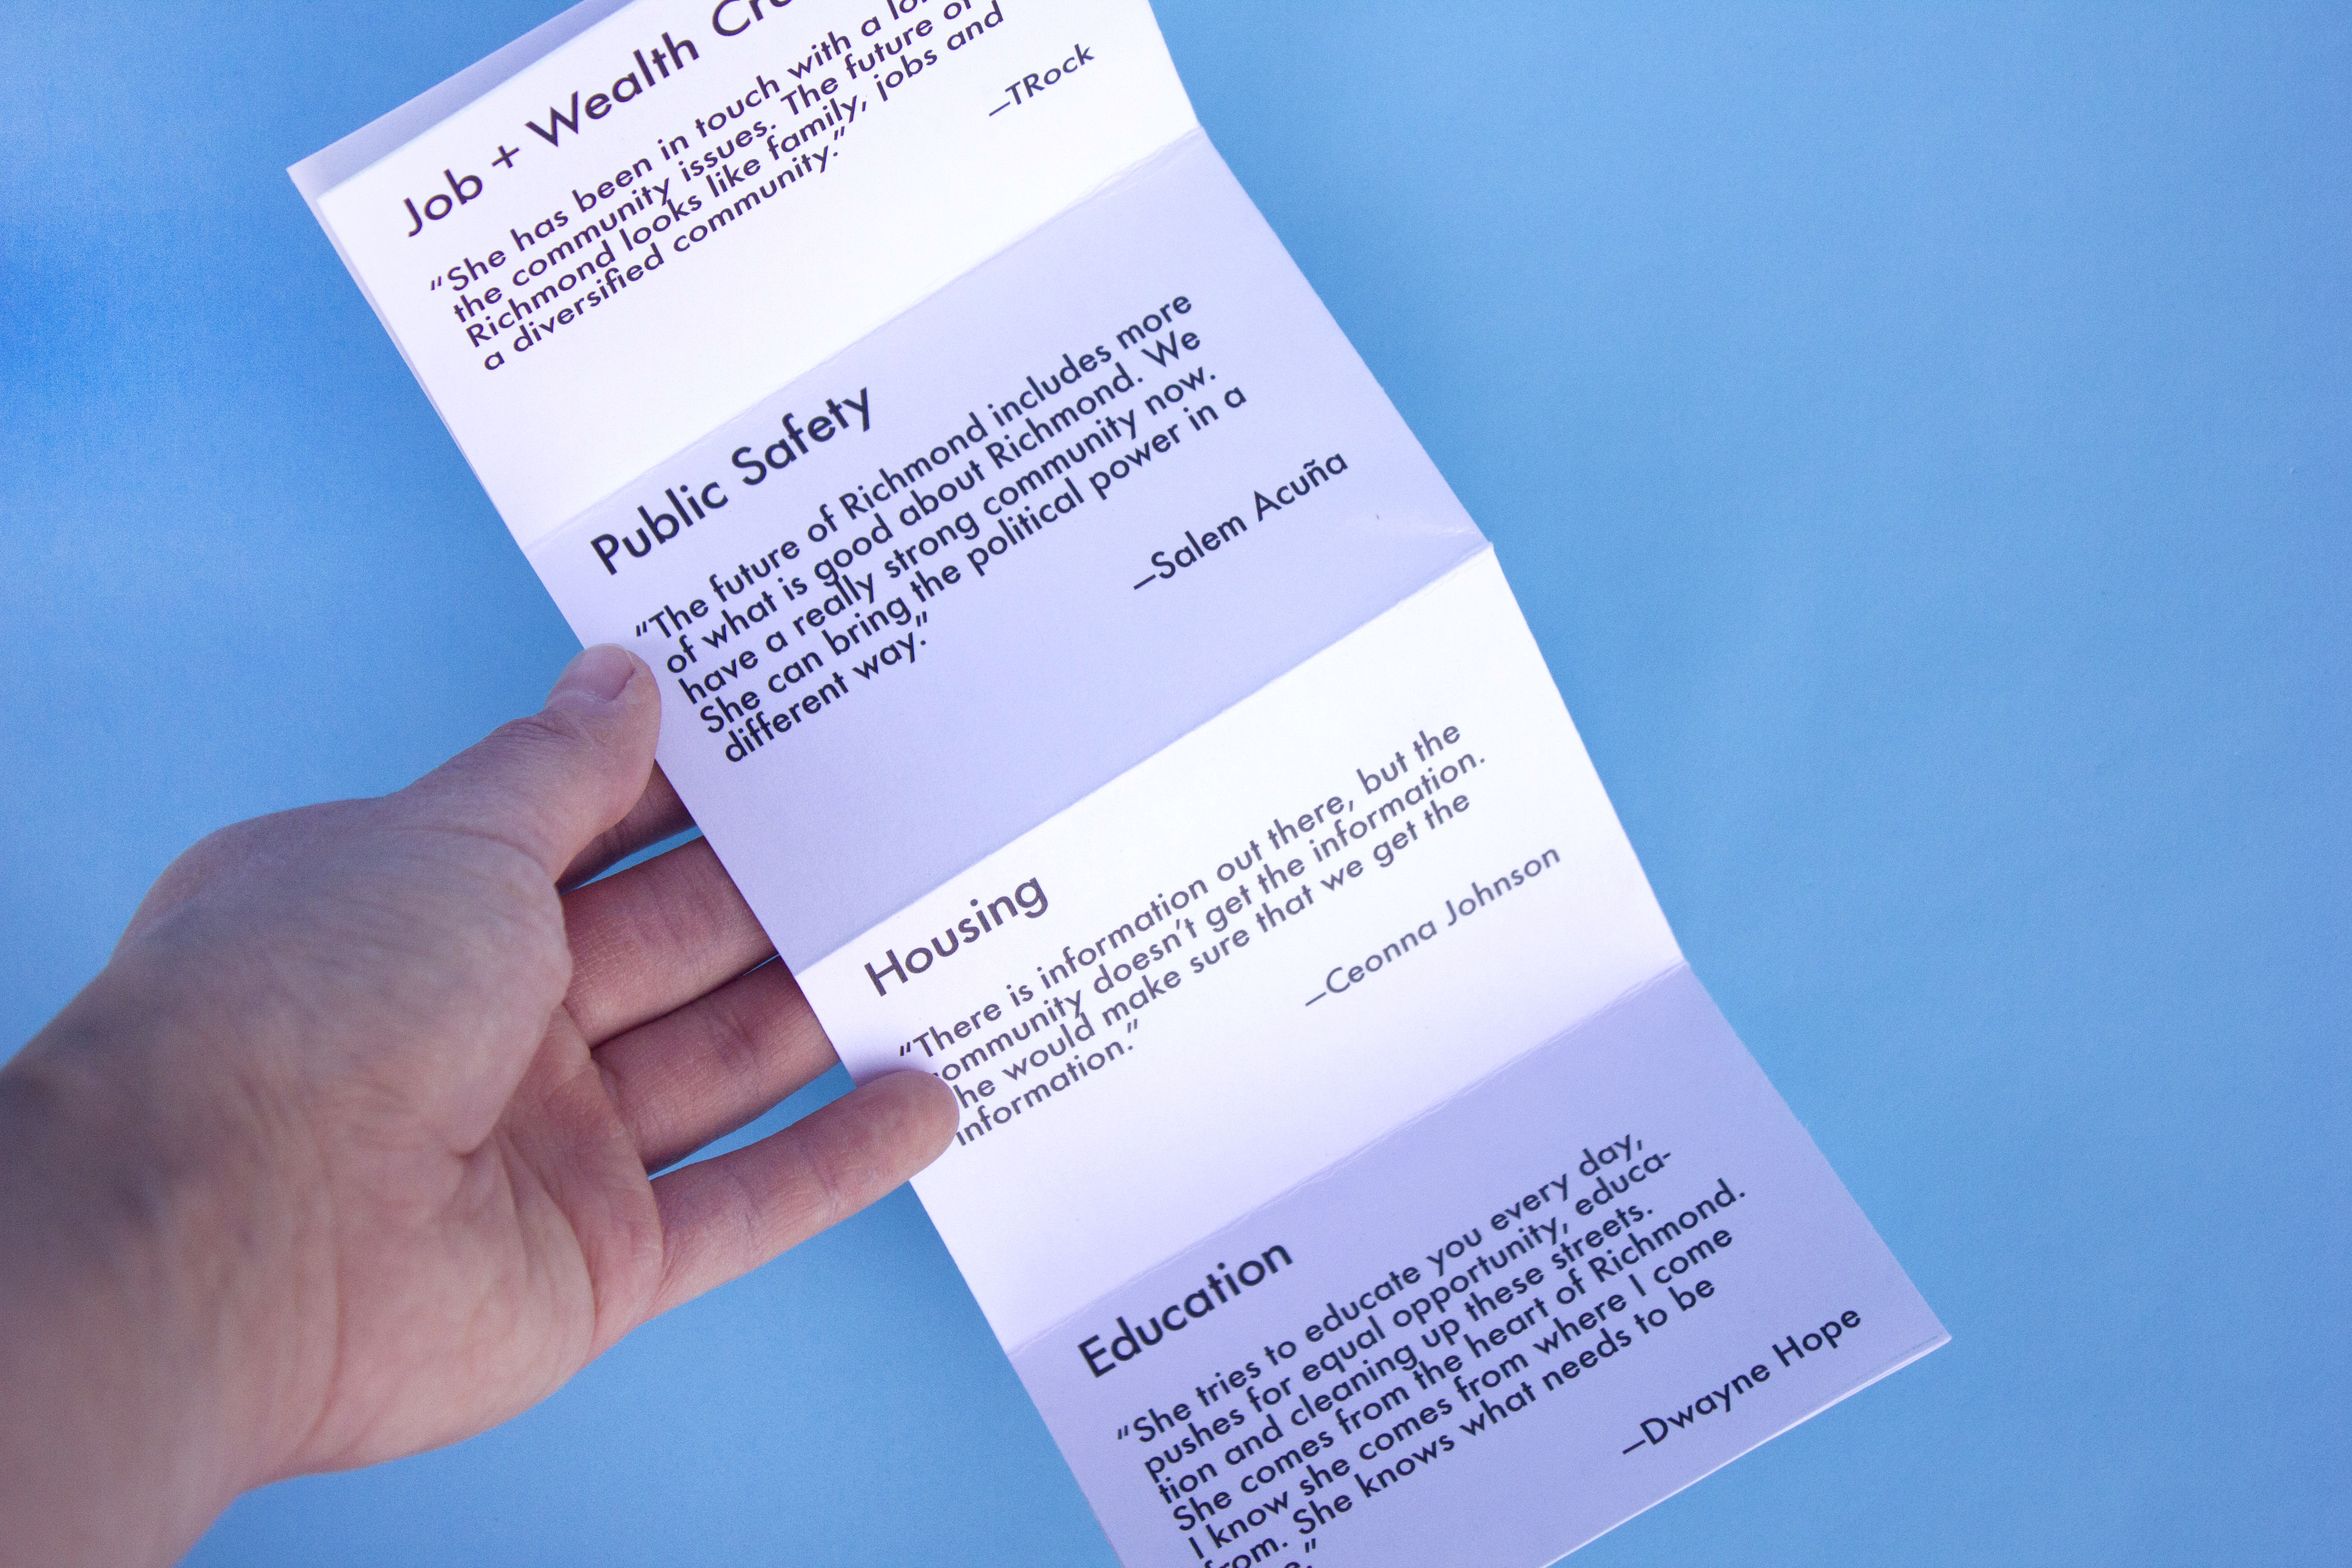 Job + Wealth
"She has been in touch with a
the community issues. The future of
Richmond looks like family, jobs and
a diversified community."
—TRock
Public Safety
"The future of Richmond includes more
of what is good about Richmond. We
have a really strong community now.
She can bring the political power in a
different way."
—Salem Acuña
Housing
"There is information out there, but the
ommunity doesn't get the information.
he would make sure that we get the
information."
—Ceonna Johnson
Education
"She tries to educate you every day,
pushes for equal opportunity, educa-
tion and cleaning up these streets.
She comes from the heart of Richmond.
I know she comes from where I come
from. She knows what needs to be
—Dwayne Hope